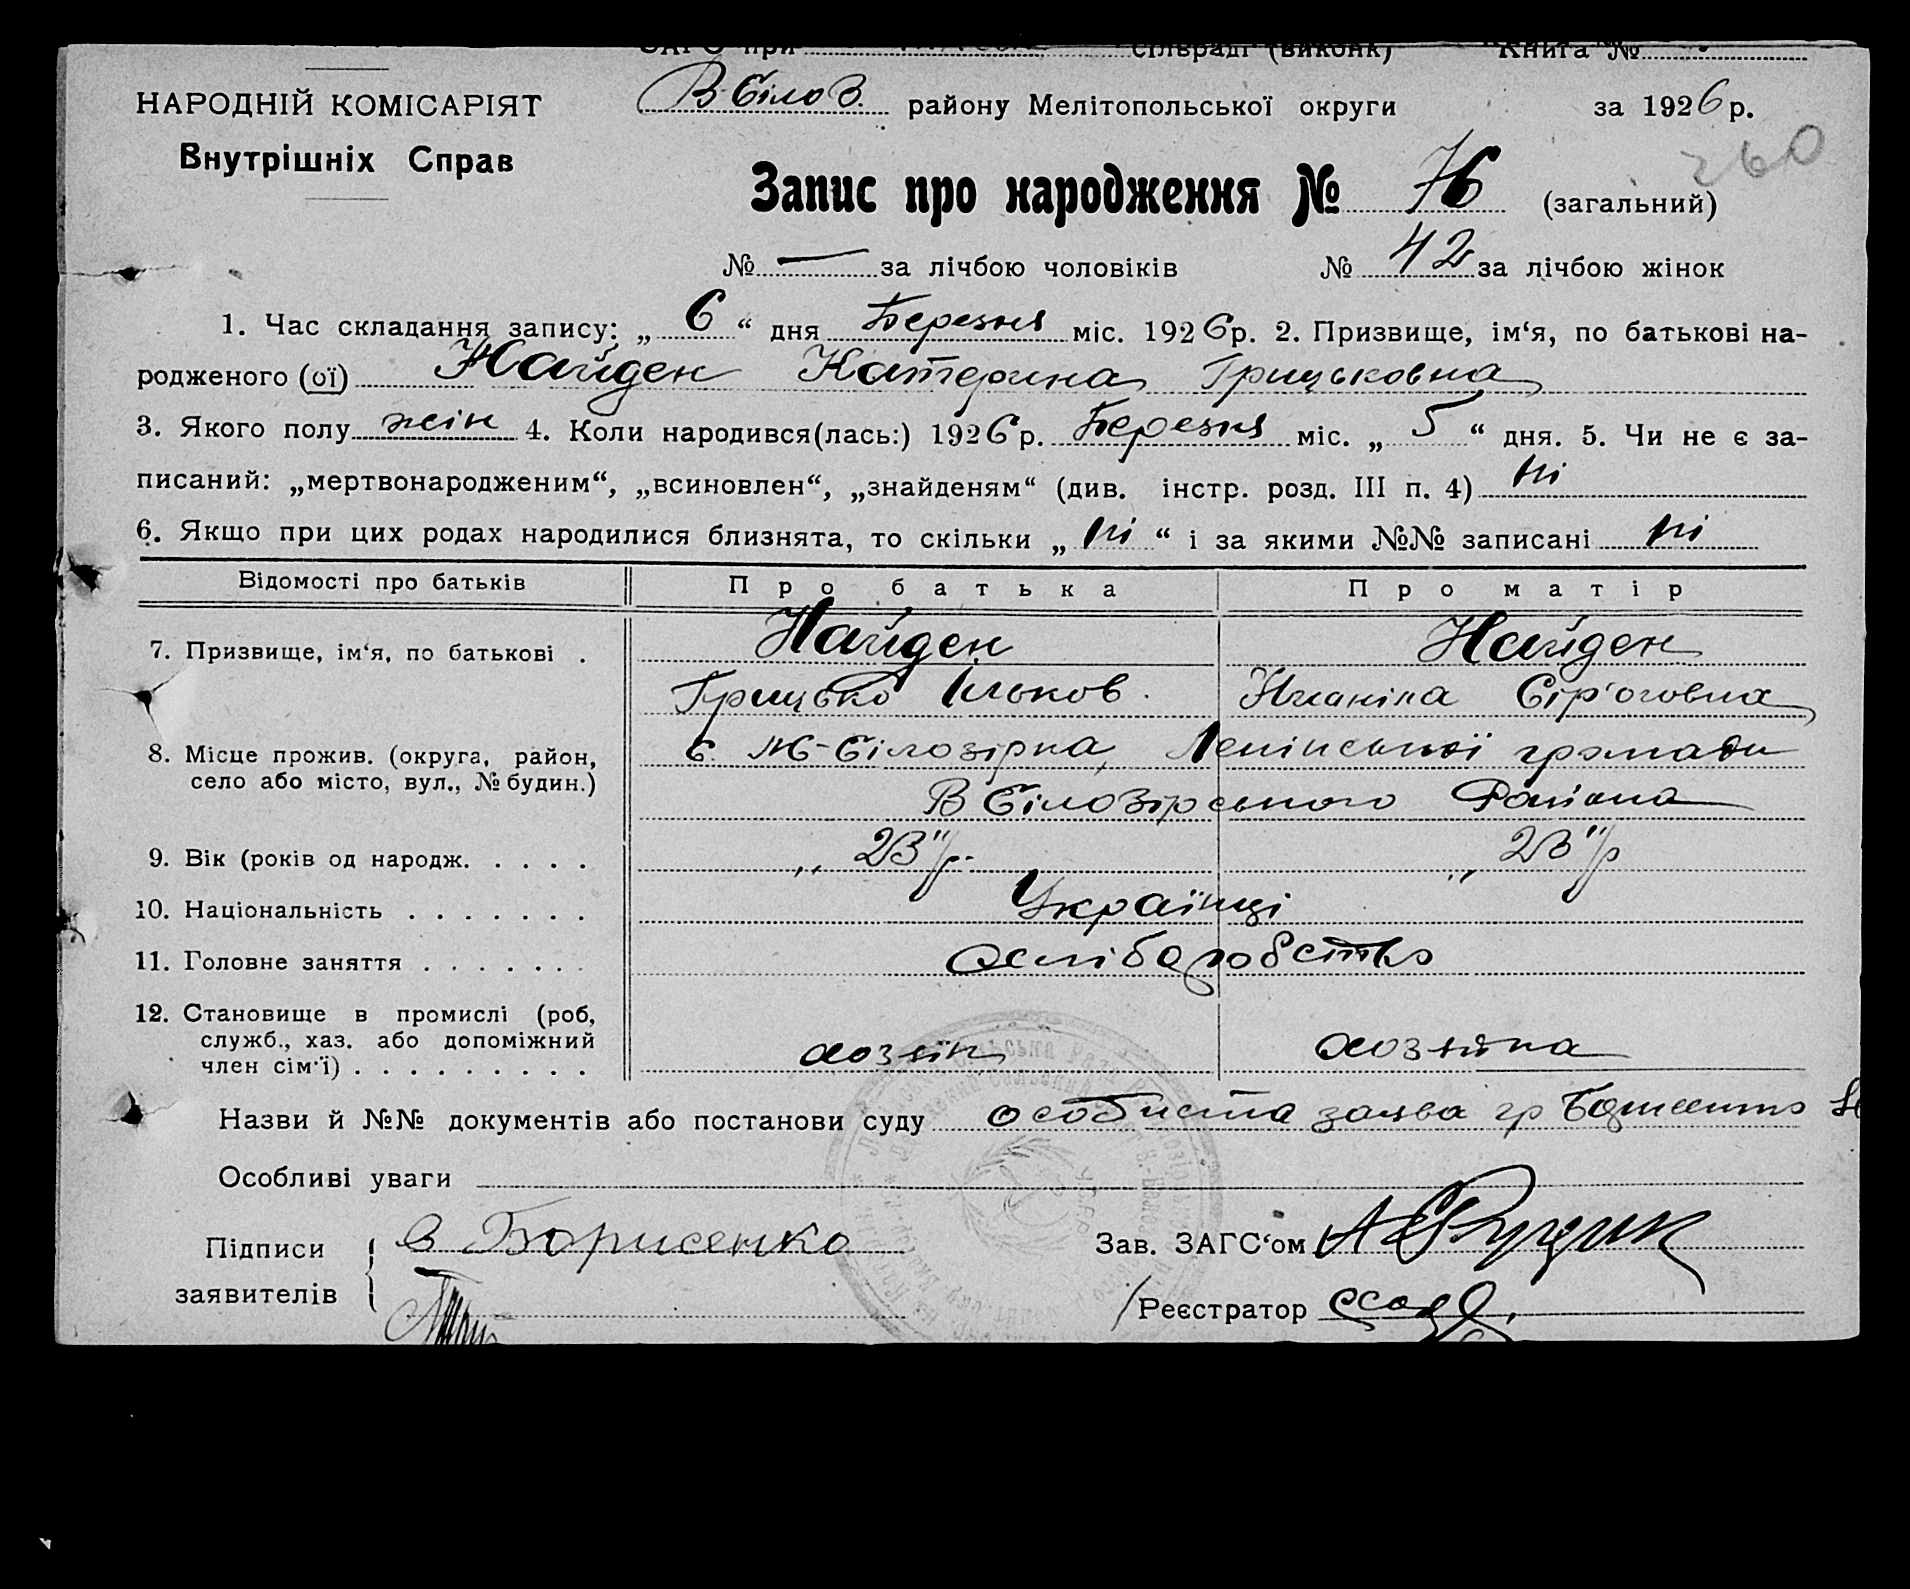 ЗАГС при сільраді (виконк) Книга №
НАРОДНІЙ КОМІСАРІЯТ
Внутрішніх Справ
В-Білоз. району Мелітопольської округи за 1926 р.
260
Запис про народження № 76 (загальний)
№ — за лічбою чоловіків № 42 за лічбою жінок
1. Час складання запису: „ 6 “ дня Березня міс. 1926 р. 2. Призвище, ім‘я, по батькові на-
родженого (ої) Найден Катерина Грицьковна
3. Якого полу жін 4. Коли народився(лась:) 1926 р. Березня міс. „ 5 “ дня. 5. Чи не є за-
писаний: „мертвонародженим“, „всиновлен“, „знайденям“ (див. інстр. розд. III п. 4) ні
6. Якщо при цих родах народилися близнята, то скільки „ ні “ і за якими №№ записані ні
Відомості про батьків Про батька Про матір
7. Призвище, ім‘я, по батькові . Найден Найден
Грицько Ільков. Сір'оговна
8. Місце прожив. (округа, район, село або місто, вул., № будин.) с. М-Білозірка, Ленінської громади
В Білозірського Району
9. Вік (років од народж. . . . . „ 23 "/р. „ 23 "/р
10. Національність . . . . . . . Українці
11. Головне заняття . . . . . . . хліборобство
12. Становище в промислі (роб, служб., хаз. або допоміжний член сім'ї) . . . . . . . . . хозяїн хозяйка
Назви й №№ документів або постанови суду особиста заява гр
Особливі уваги
Підписи заявителів В Борисенко
Зав. ЗАГС‘ом
Реєстратор